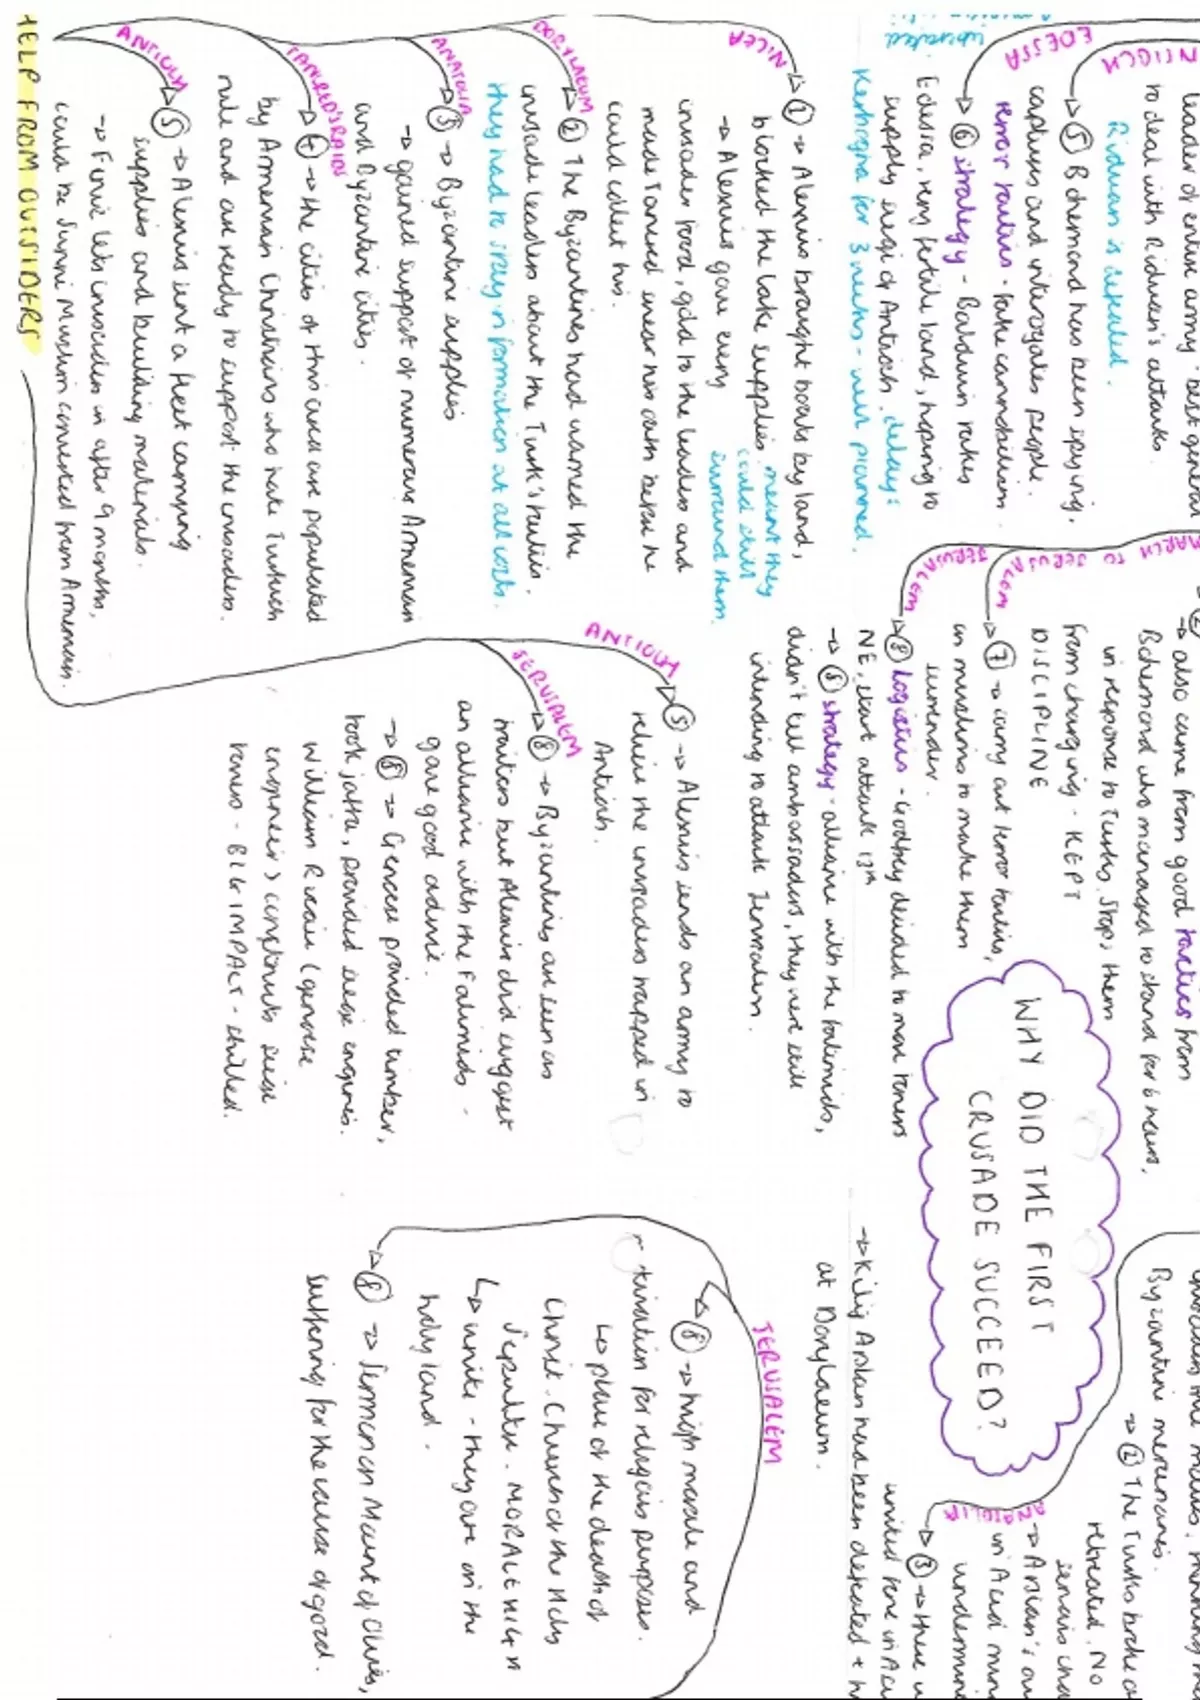 WHY DID THE FIRST
CRUSADE SUCCEED?
leader of entire army. best general
to deal with Ridwan's attacks
Ridwan is defeated.
NTIOCH
→ ⑤ Bohemond has been spying,
captures and interrogates people.
terror tactics - fake cannibalism.
EDESSA
→ ⑥ strategy - Baldwin takes
Edessa, very fertile land, hoping to
supply siege of Antioch. delays
Kerbogha for 3 weeks - well planned.
→ also came from good tactics from
Bohemond who managed to stand for 6 hours,
in response to Turks. Stops them
from charging - KEPT
DISCIPLINE
MARCH TO JERUSALEM
→ ⑦ → carry out terror tactics,
on muslims to make them
surrender.
JERUSALEM
→ ⑧ Logistics - Godfrey decided to move towers
NE, start attack 13th
→ ⑧ strategy - alliance with the fatimids,
didn't tell ambassadors, they were still
intending to attack Jerusalem.
Byzantine mercenaries.
→ ② The Turks broke
retreated. No
ANATOLIA
→ Arslan's
→ ③ → there
→ Kilij Arslan had been defeated +
at Dorylaeum.
HELP FROM OUTSIDERS
NICEA
→ ① → Alexius brought boats by land,
blocked the lake supplies meant they
could still
surround them.
→ Alexius gave every
crusader food, gold to the leaders and
made Tancred swear his oath before he
could collect his.
DORYLAEUM
→ ② The Byzantines had warned the
crusade leaders about the Turk's tactics.
they had to stay in formation at all costs.
ANATOLIA
③ → Byzantine supplies
→ gained support of numerous Armenian
and Byzantine cities.
TANCRED'S RAIDS
→ ④ → the cities of this area are populated
by Armenian Christians who hate Turkish
rule and are ready to support the crusaders.
ANTIOCH
→ ⑤ → Alexius sent a fleet carrying
supplies and building materials.
→ Firuz lets crusaders in after 9 months,
could be Sunni Muslim converted from Armenian.
ANTIOCH
→ ⑤ → Alexius sends an army to
relieve the crusaders trapped in
Antioch.
JERUSALEM
→ ⑧ → Byzantines are seen as
traitors but Alexius did suggest
an alliance with the Fatimids -
gave good advice.
→ ⑧ → Genoese provided timber,
took Jaffa, provided siege engines.
William Ricau (genoese
engineer) constructs siege
towers - BIG IMPACT - skilled.
JERUSALEM
⑧ → high morale and
for religious purposes.
↳ place of the death of
Christ. Church of the Holy
Sepulchre. MORALE HIGH
↳ unite - they are in the
holy land.
→ ⑧ → Sermon on Mount of Olives,
suffering for the cause of good.